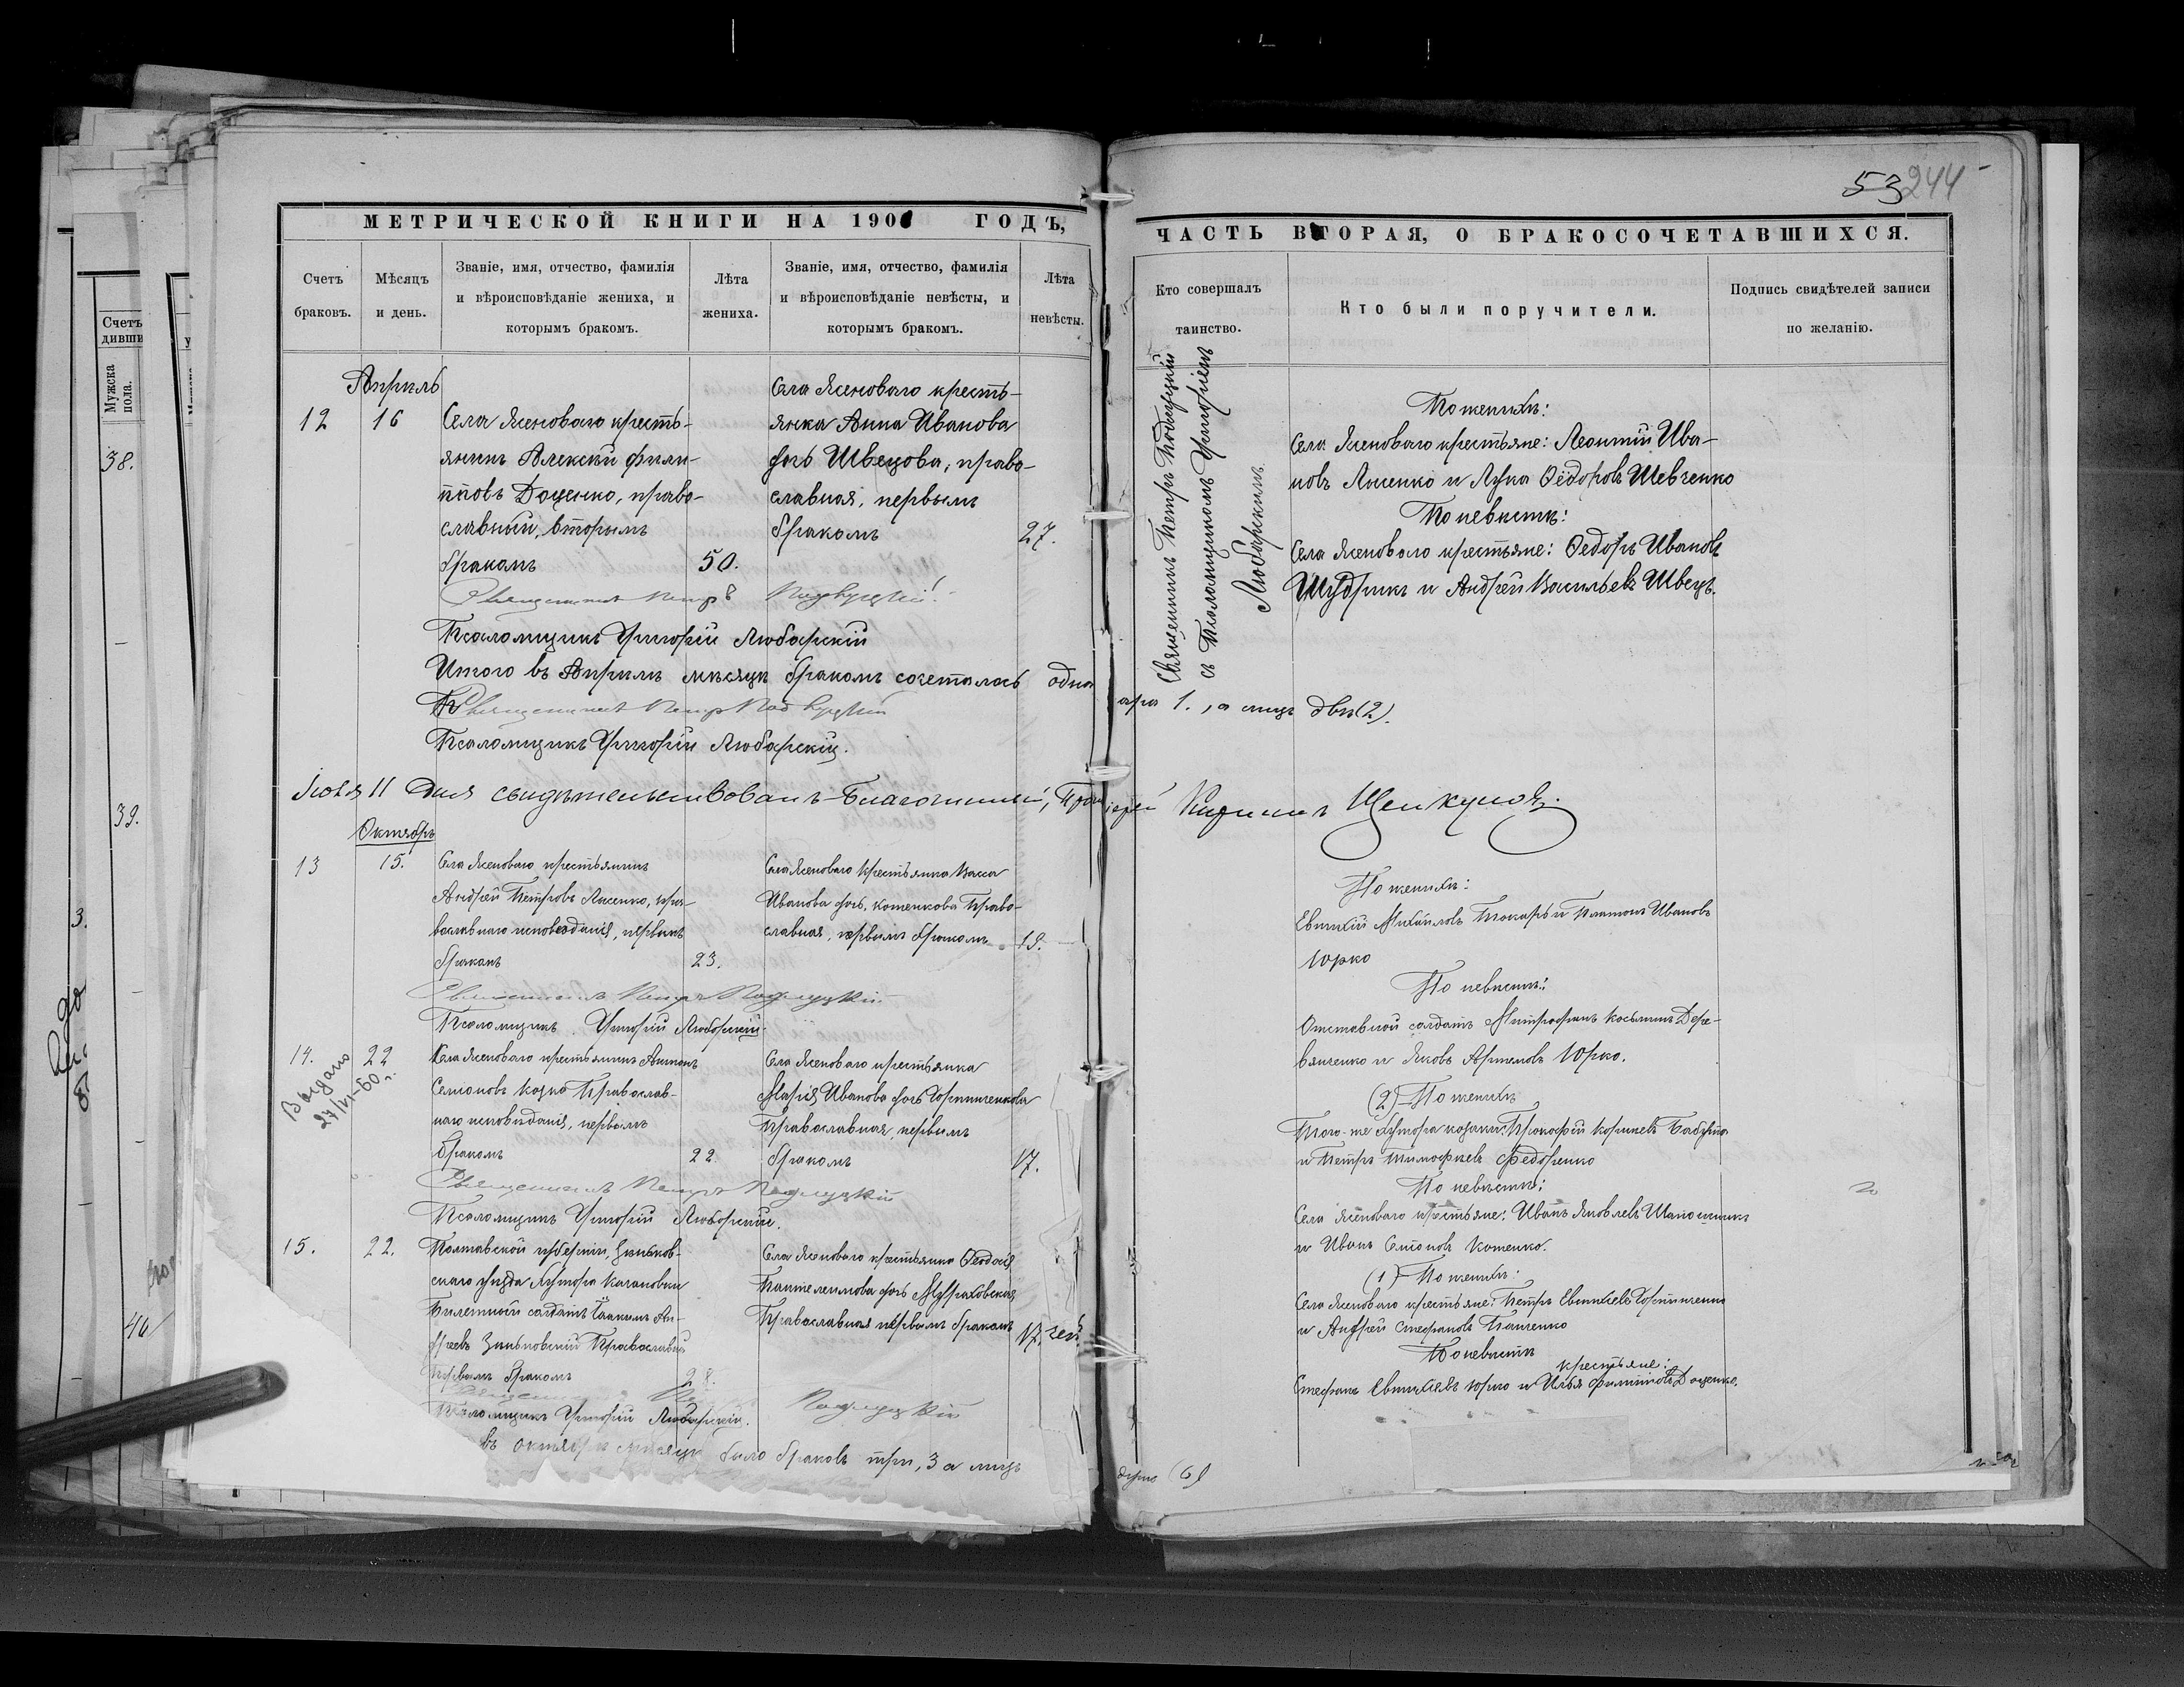 53 244
МЕТРИЧЕСКОЙ КНИГИ НА 190 ГОДЪ,
Счетъ браковъ.
Мѣсяцъ и день.
Званіе, имя, отчество, фамилія
и вѣроисповѣданіе жениха, и
которымъ бракомъ.
Лѣта
жениха.
Званіе, имя, отчество, фамилія
и вѣроисповѣданіе невѣсты, и
которымъ бракомъ.
Лѣта
невѣсты.
Апрѣль
12
16
Села Ясеноваго кресть-
янинъ Алексѣй Фили-
пповъ Доценко, право-
славный, вторымъ
бракомъ
50.
Села Ясеноваго кресть-
янка Анна Иванова
дочь Швецова, право-
славная, первымъ
бракомъ
27.
Священникъ Петръ
Псаломщикъ Григорій Любарскій
Итого въ Апрѣлѣ мѣсяцѣ бракомъ сочеталось одна
Священникъ Петръ
Псаломщикъ Григорій Любарскій.
Іюля 11 дня свидѣтельствовалъ Благочинный,
Октябрь
13
15.
Села Ясеноваго крестьянинъ
Андрей Петровъ Лисенко, пра-
вославнаго исповѣданія, первымъ
бракомъ
23.
Села Ясеноваго крестьянка Васса
Иванова дочь, Котенкова Право-
славная, первымъ бракомъ
19.
Священникъ Петръ
Псаломщикъ Григорій Любарскій
14.
22
Выдано
27/VI-60 г.
Села Ясеноваго крестьянинъ Антонъ
Семеновъ Козка Православ-
наго исповѣданія, первымъ
бракомъ
22.
Села Ясеноваго крестьянка
Марія Иванова дочь Гортинченкова
Православная, первымъ
бракомъ
17.
Священникъ Петръ
Псаломщикъ Григорій Любарскій.
15.
22.
Полтавской губерніи, Зиньков-
скаго уѣзда Хутора Качановки
Билетный солдатъ Іоакимъ Ан-
дреевъ Зиньковскій Православный
первымъ бракомъ
28.
Села Ясеноваго крестьянка Ѳеодосія
Пантелеимова дочь Мураховская
Православная первымъ бракомъ
17.
Псаломщикъ Григорій Любарскій.
въ октябрѣ мѣсяцѣ было браковъ три, 3 а лицъ
ЧАСТЬ ВТОРАЯ, О БРАКОСОЧЕТАВШИХСЯ.
Кто совершалъ
таинство.
Кто были поручители.
Подпись свидѣтелей записи
по желанію.
Священникъ Петръ
съ Псаломщикомъ Григоріемъ
Любарскимъ.
По женихѣ:
Села Ясеноваго крестьяне: Леонтій Ива-
новъ Лисенко и Лука Ѳедоровъ Шевченко
По невѣстѣ:
Села Ясеноваго крестьяне: Ѳедоръ Ивановъ
Шудрикъ и Андрей Васильевъ Швецъ.
1., а лицъ двѣ (2).
По женихѣ:
Евтихій Михайловъ Токарь и Платонъ Ивановъ
Юрко
По невѣстѣ:
Отставной солдатъ Митрофанъ Косьминъ Дере-
вянченко и Яковъ Артемовъ Юрко.
(2) По женихѣ
Того-же Хутора козаки: Прокофій
и Петръ Тимофѣевъ Федоренко
По невѣстѣ:
Села Ясеноваго крестьяне: Иванъ Яковлевъ
и Иванъ Семеновъ Котенко.
(1) По женихѣ:
Села Ясеноваго крестьяне: Петръ Евтихіевъ Гортинченко
и Андрей Стефановъ
По невѣстѣ
крестьяне:
Стефанъ Евтихіевъ Юрко и Илья Филипповъ Доценко.
(6)
Счетъ
Мужска
пола.
38.
39.
3.
40